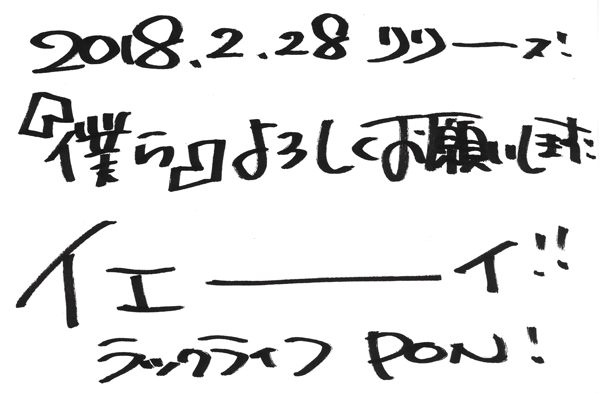 2018.2.28 リリース!
『僕ら』よろしくお願いします
イエーーイ!!
ラックライフ PON!